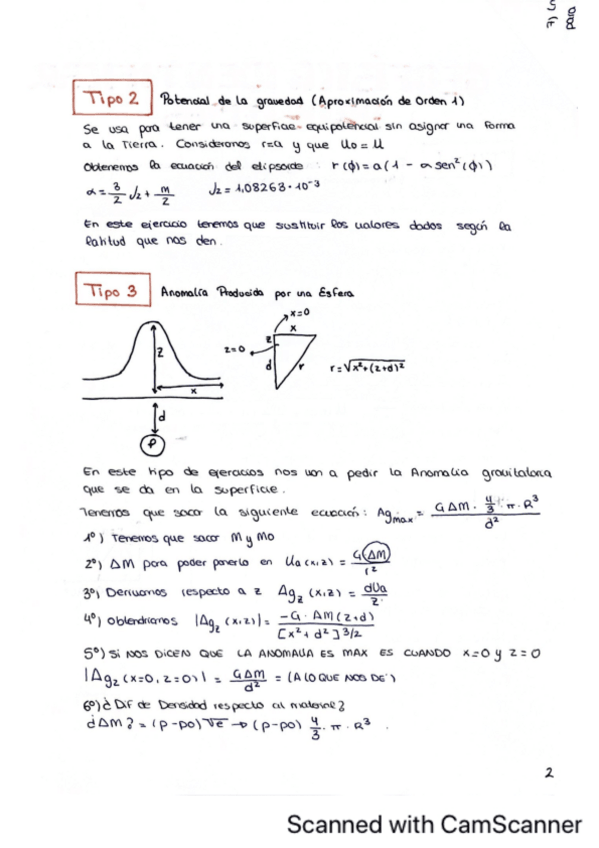 F) S
para
Tipo 2 Potencial de la gravedad (Aproximación de Orden 1)
Se usa para tener una superficie equipotencial sin asignar una forma
a la Tierra. Consideramos r=a y que U₀ = U
Obtenemos la ecuación del elipsoide : r(φ) = a(1 - α sen²(φ))
α = 3/2 J₂ + m/2 J₂ = 1,08263·10⁻³
En este ejercicio tenemos que sustituir los valores dados según la
latitud que nos den.
Tipo 3 Anomalía Producida por una Esfera
x=0
x
z
z=0
z
d
r
r=√x²+(z+d)²
x
d
P
En este tipo de ejercicios nos van a pedir la Anomalía gravitatoria
que se da en la superficie.
Tenemos que sacar la siguiente ecuación: Ag max = G ΔM · 4/3 · π · R³ / d²
1º) Tenemos que sacar M y Mo
2º) ΔM para poder ponerlo en Ua(x,z) = G(ΔM) / r²
3º) Derivamos respecto a z Ag z (x,z) = dUa / z
4º) Obtendríamos |Ag z (x,z)| = -G · ΔM(z+d) / [x²+d²]3/2
5º) SI NOS DICEN QUE LA ANOMALÍA ES MAX ES CUANDO x=0 y z=0
|Ag z (x=0, z=0)| = GΔM / d² = (A LO QUE NOS DE)
6º) ¿Dif de Densidad respecto al material?
¿ΔM? = (p-po) Ve → (p-po) 4/3 · π · R³ .
2
Scanned with CamScanner